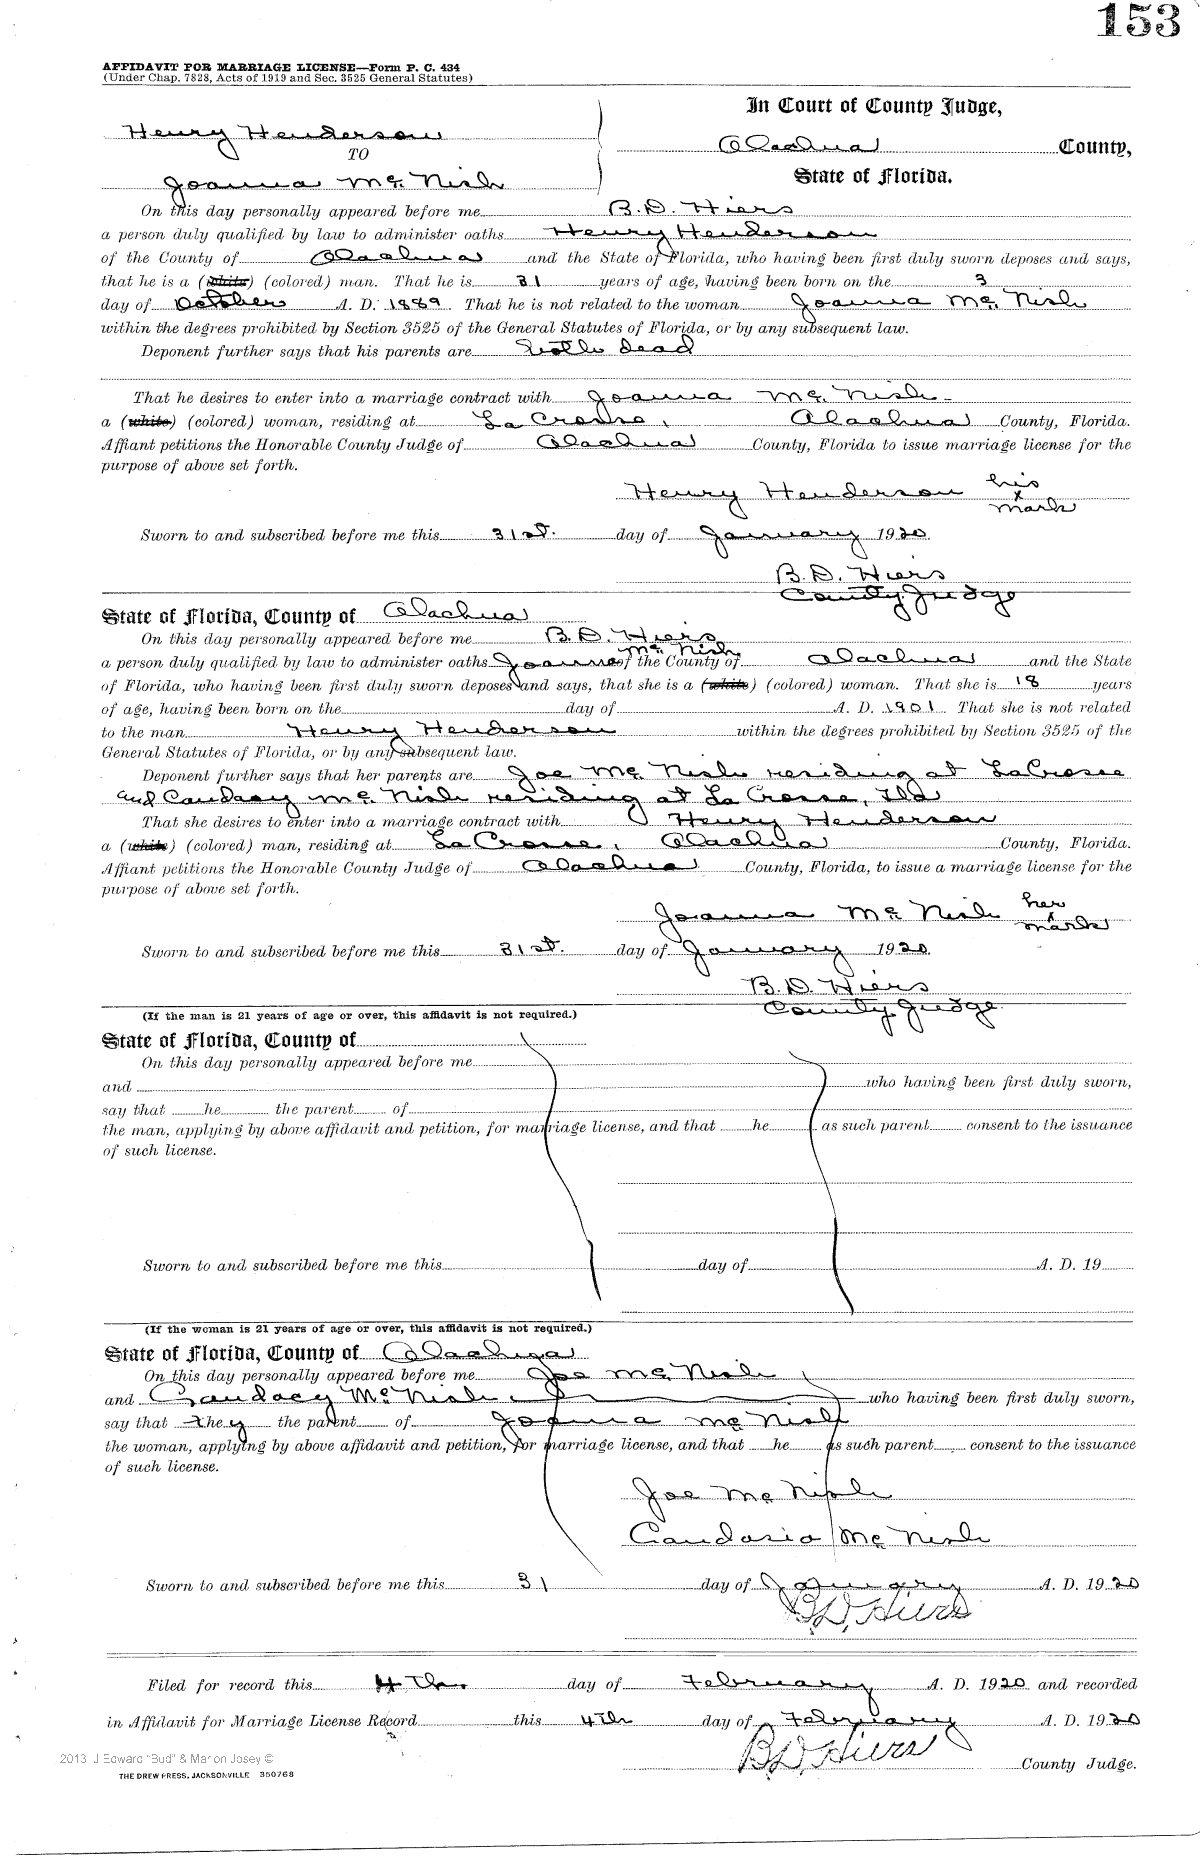 153
AFFIDAVIT FOR MARRIAGE LICENSE—Form P. C. 434
(Under Chap. 7828, Acts of 1919 and Sec. 3525 General Statutes)
In Court of County Judge,
Henry Henderson
Alachua County,
TO
State of Florida.
Joanna Mc. Nish
On this day personally appeared before me B. D. Hiers
a person duly qualified by law to administer oaths Henry Henderson
of the County of Alachua and the State of Florida, who having been first duly sworn deposes and says,
that he is a (white) (colored) man. That he is 31 years of age, having been born on the 3
day of October A. D. 1889. That he is not related to the woman Joanna Mc. Nish
within the degrees prohibited by Section 3525 of the General Statutes of Florida, or by any subsequent law.
Deponent further says that his parents are both dead
That he desires to enter into a marriage contract with Joanna Mc. Nish
a (white) (colored) woman, residing at La Crosse, Alachua County, Florida.
Affiant petitions the Honorable County Judge of Alachua County, Florida to issue marriage license for the
purpose of above set forth.
Henry Henderson his
x
mark
Sworn to and subscribed before me this 31st. day of January 1920.
B. D. Hiers
County Judge
State of Florida, County of Alachua
On this day personally appeared before me B. D. Hiers
a person duly qualified by law to administer oaths Joanna Mc. Nish of the County of Alachua and the State
of Florida, who having been first duly sworn deposes and says, that she is a (white) (colored) woman. That she is 18 years
of age, having been born on the day of A. D. 1901. That she is not related
to the man Henry Henderson within the degrees prohibited by Section 3525 of the
General Statutes of Florida, or by any subsequent law.
Deponent further says that her parents are Joe Mc. Nish residing at LaCrosse
and Caudacy Mc. Nish residing at La Crosse, Fla
That she desires to enter into a marriage contract with Henry Henderson
a (white) (colored) man, residing at La Crosse, Alachua County, Florida.
Affiant petitions the Honorable County Judge of Alachua County, Florida, to issue a marriage license for the
purpose of above set forth.
Joanna Mc. Nish her
x
mark
Sworn to and subscribed before me this 31st. day of January 1920.
B. D. Hiers
County Judge
(If the man is 21 years of age or over, this affidavit is not required.)
State of Florida, County of
On this day personally appeared before me
and who having been first duly sworn,
say that he the parent of
the man, applying by above affidavit and petition, for marriage license, and that he as such parent consent to the issuance
of such license.
Sworn to and subscribed before me this day of A. D. 19
(If the woman is 21 years of age or over, this affidavit is not required.)
State of Florida, County of Alachua
On this day personally appeared before me Joe Mc. Nish
and Caudacy Mc. Nish who having been first duly sworn,
say that they the parent of Joanna Mc. Nish
the woman, applying by above affidavit and petition, for marriage license, and that he as such parent consent to the issuance
of such license.
Joe Mc Nish
Caudasia Mc. Nish
Sworn to and subscribed before me this 31 day of January A. D. 1920
B. D. Hiers
Filed for record this 4th. day of February A. D. 1920 and recorded
in Affidavit for Marriage License Record this 4th day of February A. D. 1920
B D Hiers
County Judge.
2013 J Edward "Bud" & Marion Josey ©
THE DREW PRESS, JACKSONVILLE 350768